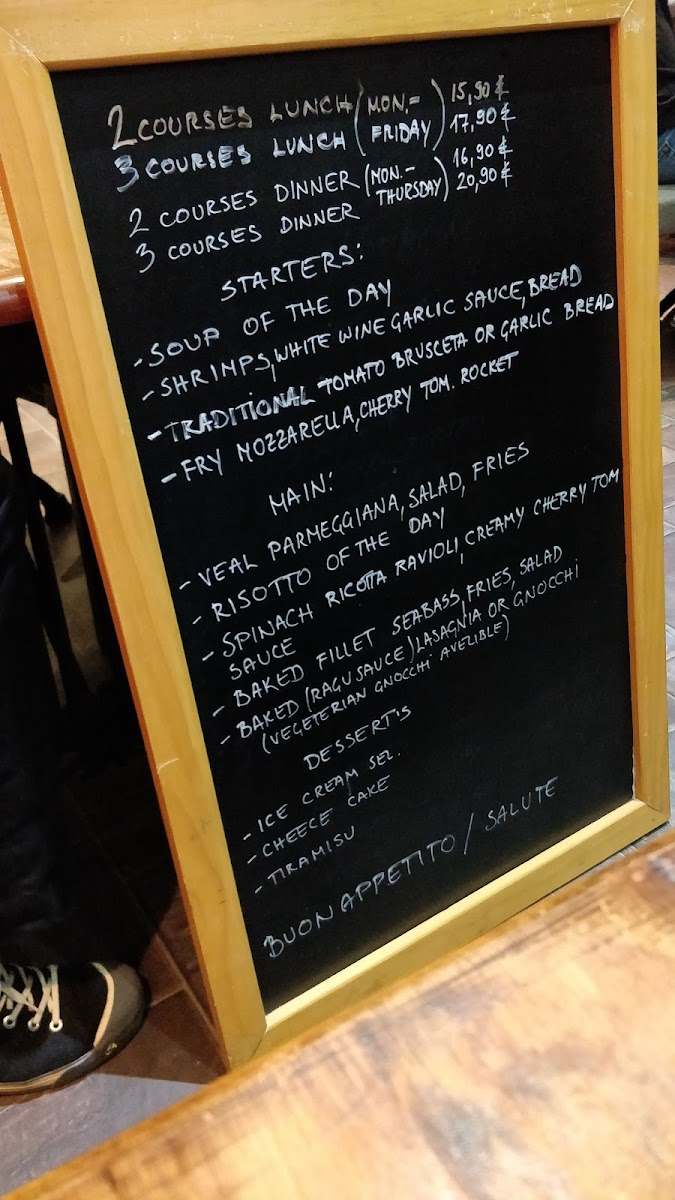 2 COURSES LUNCH (MON.- 15,90 €
3 COURSES LUNCH FRIDAY) 17,90 €
2 COURSES DINNER (MON.- 16,90 €
3 COURSES DINNER THURSDAY) 20,90 €
STARTERS:
- SOUP OF THE DAY
- SHRIMPS, WHITE WINE GARLIC SAUCE, BREAD
- TRADITIONAL TOMATO BRUSCETA OR GARLIC BREAD
- FRY MOZZARELLA, CHERRY TOM. ROCKET
MAIN:
- VEAL PARMEGGIANA, SALAD, FRIES
- RISOTTO OF THE DAY
- SPINACH RICOTTA RAVIOLI, CREAMY CHERRY TOM
SAUCE
- BAKED FILLET SEABASS, FRIES, SALAD
- BAKED (RAGU SAUCE) LASAGNIA OR GNOCCHI
(VEGETERIAN GNOCCHI AVELIBLE)
DESSERT'S
- ICE CREAM SEL.
- CHEECE CAKE
- TIRAMISU
BUON APPETITO / SALUTE